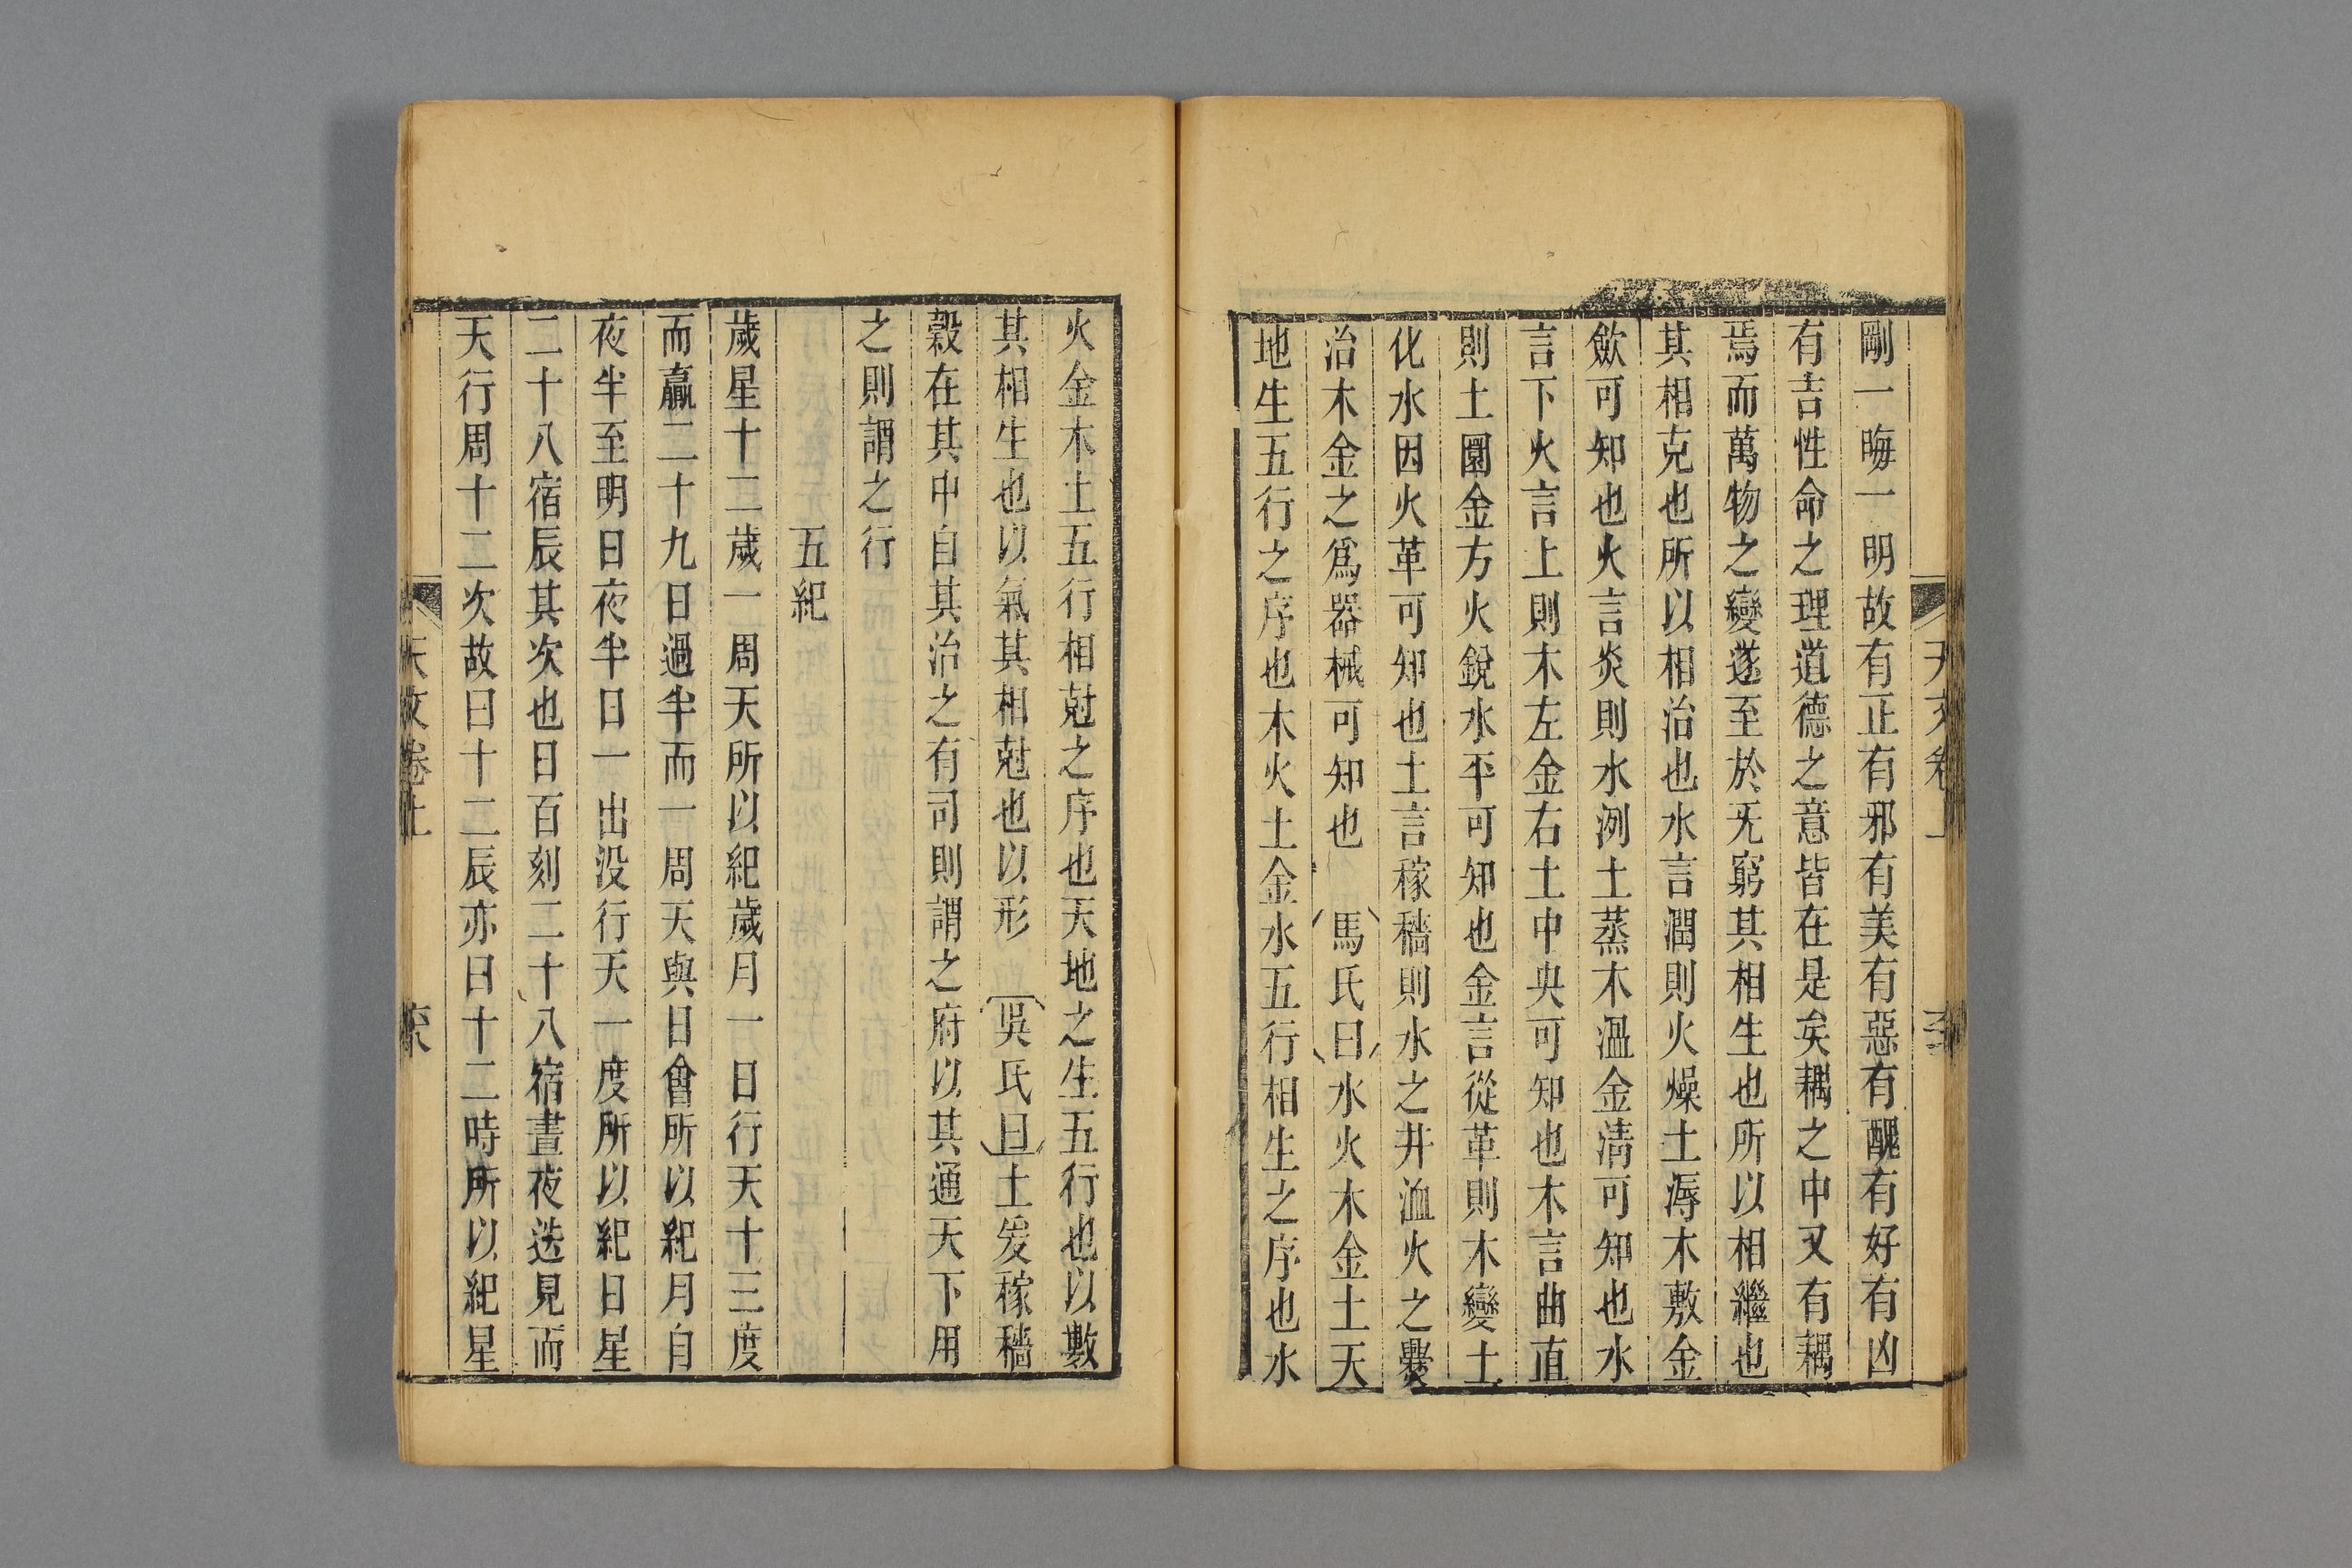 剛一晦一明故有正有邪有美有惡有醜有好有凶
有吉性命之理道德之意皆在是矣耦之中又有耦
焉而萬物之變遂至於无窮其相生也所以相繼也
其相克也所以相治也水言潤則火燥土溽木敷金
歛可知也火言炎則水洌土蒸木溫金清可知也水
言下火言上則木左金右土中央可知也木言曲直
則土圜金方火銳水平可知也金言從革則木變土
化水因火革可知也土言稼穡則水之井洫火之爨
治木金之爲器械可知也 馬氏曰水火木金土天
地生五行之序也木火土金水五行相生之序也水
火金木土五行相尅之序也天地之生五行也以數
其相生也以氣其相尅也以形 吳氏曰土爰稼穡
穀在其中自其治之有司則謂之府以其通天下用
之則謂之行
五紀
歲星十二歲一周天所以紀歲月一日行天十三度
而贏二十九日過半而一周天與日會所以紀月自
夜半至明日夜半日一出沒行天一度所以紀日星
二十八宿辰其次也日百刻二十八宿晝夜迭見而
天行周十二次故曰十二辰亦曰十二時所以紀星
天文卷上